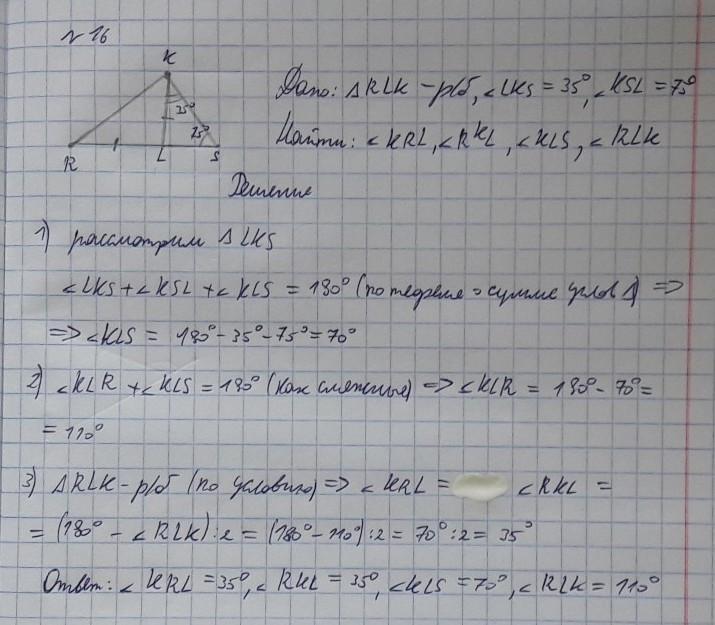 № 16
K
35°
75°
R L S
Дано: Δ RLK – р/б, ∠LKS = 35°, ∠KSL = 75°
Найти: ∠KRL, ∠RKL, ∠KLS, ∠RLK
Решение
1) рассмотрим Δ LKS
∠LKS + ∠KSL + ∠KLS = 180° (по теореме о сумме углов Δ) =>
=> ∠KLS = 180° - 35° - 75° = 70°
2) ∠KLR + ∠KLS = 180° (как смежные) => ∠KLR = 180° - 70° =
= 110°
3) Δ RLK – р/б (по условию) => ∠KRL = ∠RKL =
= (180° - ∠RLK) : 2 = (180° - 110°) : 2 = 70° : 2 = 35°
Ответ: ∠KRL = 35°, ∠RKL = 35°, ∠KLS = 70°, ∠RLK = 110°